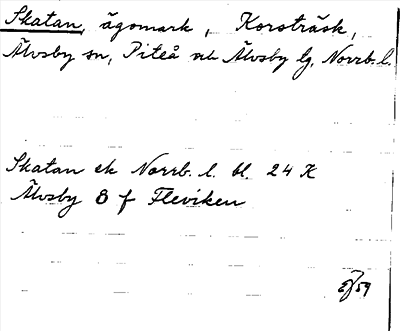 Skatan, ägomark, Korsträsk,
Älvsby sn, Piteå och Älvsby lg, Norrb. l.
Skatan ek Norrb. l. bl. 24 K
Älvsby 8 f Fleviken